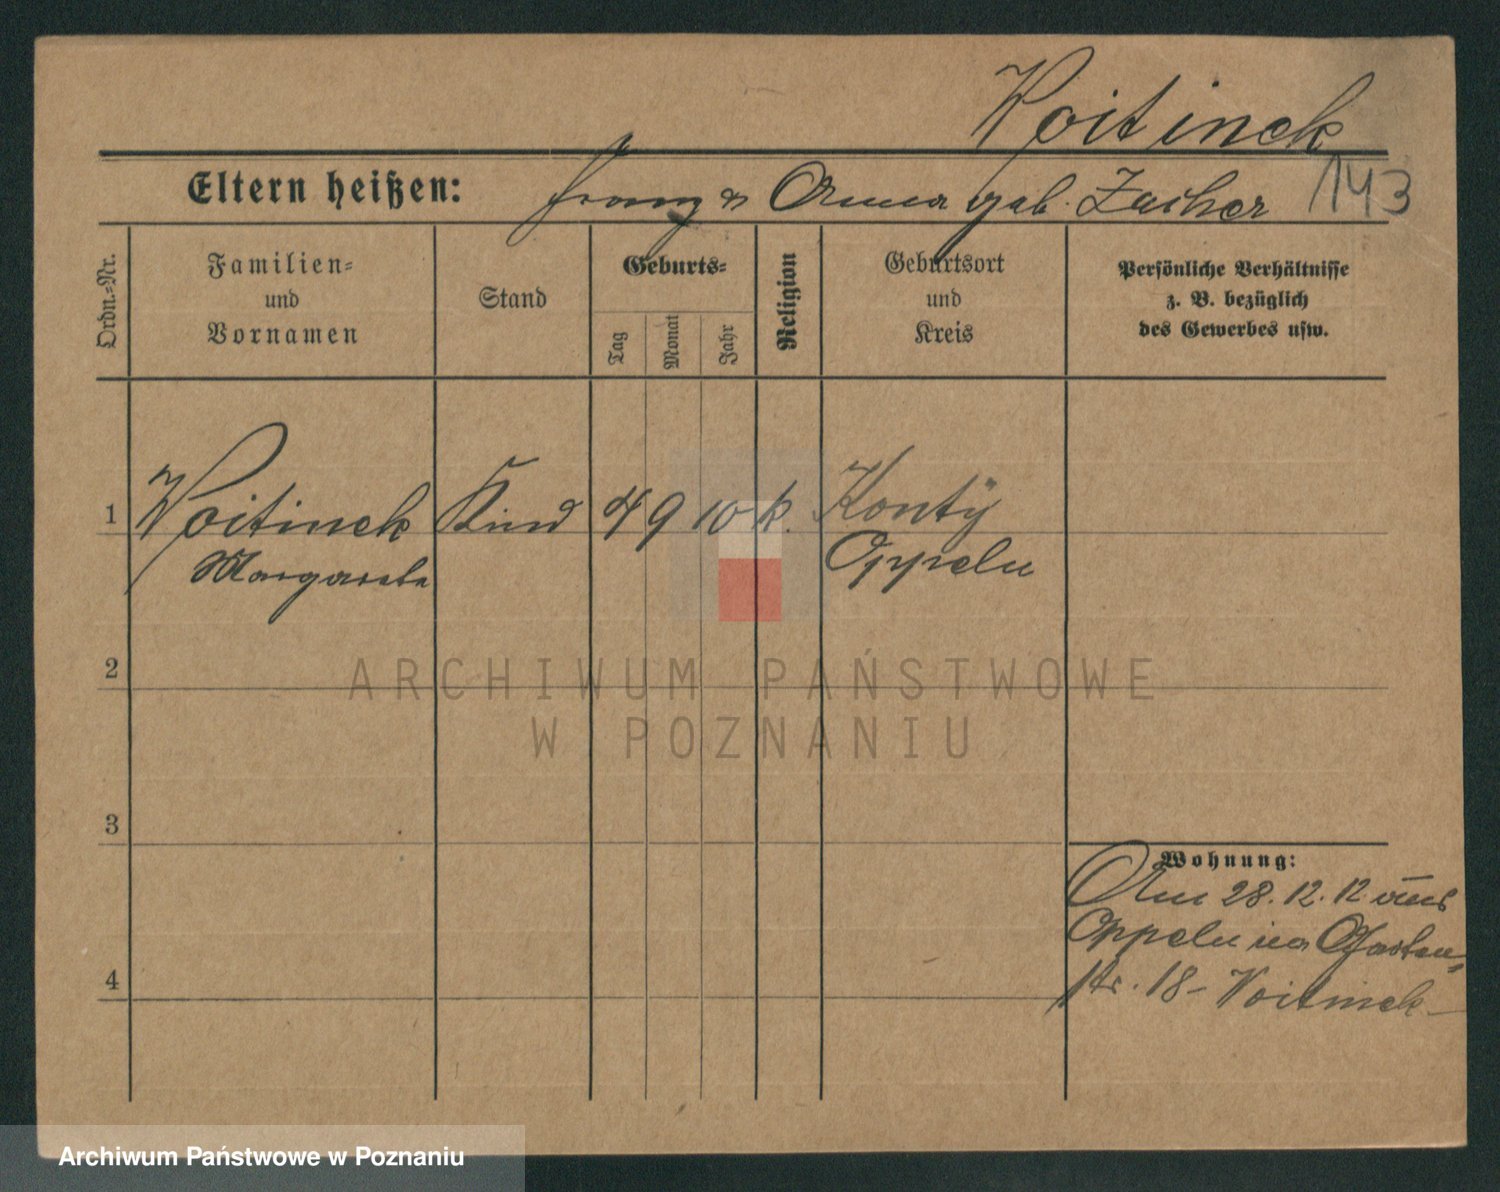 Woitinek
Eltern heißen: Franz & Anna geb. Zacher 143
Ordn.=Nr.
Familien=
und
Vornamen
Stand
Geburts=
Tag
Monat
Jahr
Religion
Geburtsort
und
Kreis
Persönliche Verhältnisse
z. B. bezüglich
des Gewerbes usw.
1 Woitinek Kind 4 9 10 k. Konty
Margarete Oppeln
2
3
4
Wohnung:
Am 28. 12. 12 aus
Oppeln in Garten=
str. 18 - Woitinek -
ARCHIWUM PAŃSTWOWE
W POZNANIU
Archiwum Państwowe w Poznaniu